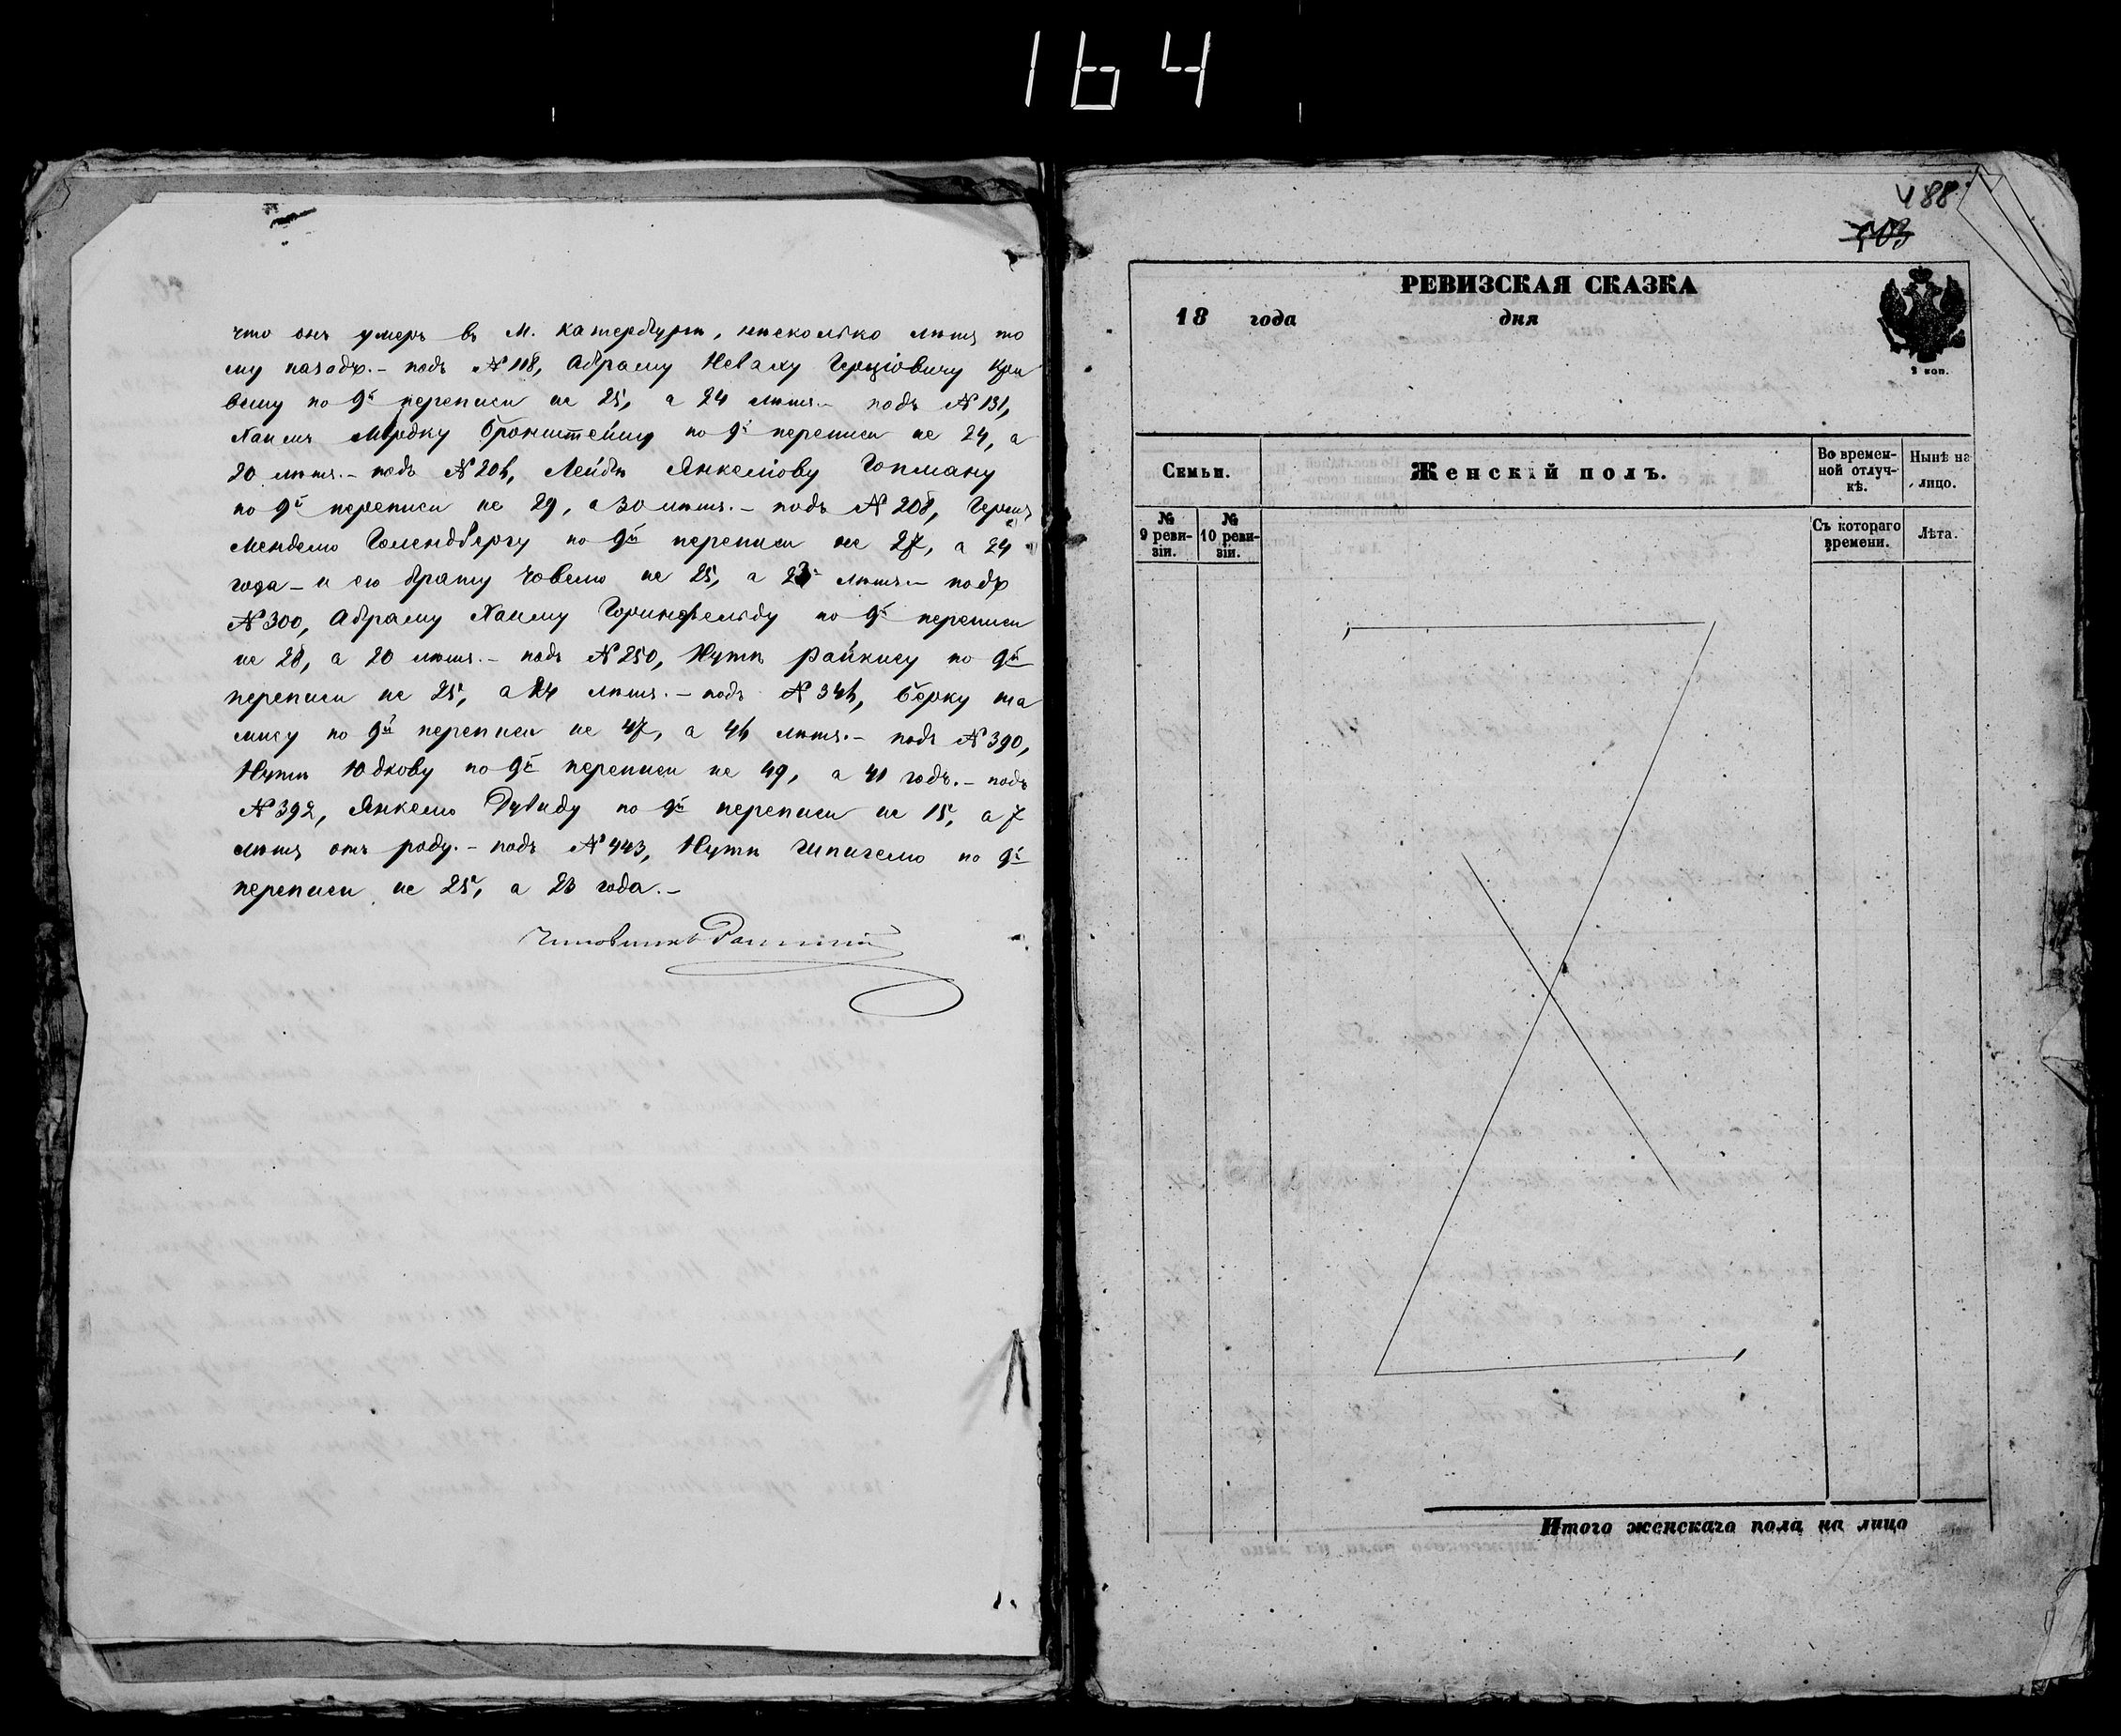 164
что онъ умеръ въ м. Катербургѣ, нѣсколько лѣтъ то
му назадъ.- подъ №118, Абраму Неваху Герціовичу Кри
вому по 9й переписи не 25, а 24 лѣтъ.- подъ №131,
Хаимъ Мордку Бронштейну по 9й переписи не 24, а
20 лѣтъ.- подъ №204, Лейбѣ Янкелiову Гопману
по 9й переписи не 29, а 30 лѣтъ.- подъ №208, Гершъ
Менделю Голендбергу по 9й переписи не 27, а 24
года - и его брату Іовелю не 25, а 23 лѣтъ.- подъ
№300, Абраму Хаиму Горинфельду по 9й переписи
не 28, а 20 лѣтъ.- подъ №250, Нутѣ Райкису по 9й
переписи не 25, а 24 лѣтъ.- подъ №344, Берку
по 9й переписи не 47, а 46 лѣтъ.- подъ №390,
Нутѣ Юдкову по 9й переписи не 49, а 41 годъ.- подъ
№392, Янкелю Дувиду по 9й переписи не 15, а 7
лѣтъ отъ роду.- подъ №443, Нутѣ Шпигелю по 9й
переписи не 25, а 23 года.-
Чиновникъ
488
503
РЕВИЗСКАЯ СКАЗКА
18 года дня
2 коп.
Семьи.
Женскій полъ.
Во времен-
ной отлуч-
кѣ.
Нынѣ на
лицо.
№
9 реви-
зіи.
№
10 реви-
зіи.
Съ котораго
времени.
Лѣта.
Итого женскаго пола на лицо